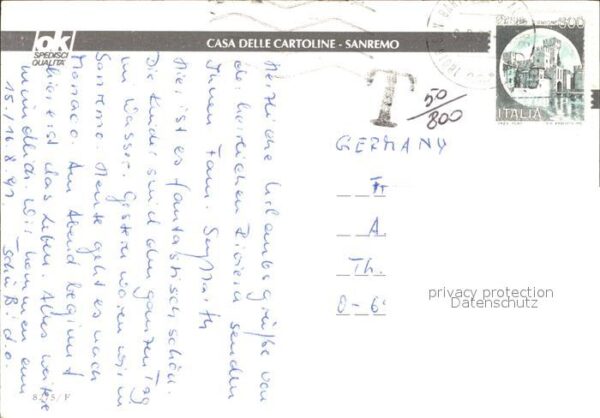 ok
SPEDISCI
QUALITÀ
CASA DELLE CARTOLINE - SANREMO
500
ITALIA
T 50/800
GERMANY
Fr
A.
Th.
O-6
privacy protection
Datenschutz
Herzliche Urlaubsgrüße von
der herrlichen Riviera senden
Ihnen Fam.
Hier ist es fantastisch schön.
Die Kinder sind den ganzen Tag
im Wasser. Gestern waren wir in
Sanremo. Heute geht es nach
Monaco. Am Abend beginnt
hier erst das Leben. Alles weitere
mündlich. Wir kommen am
15./16.8.